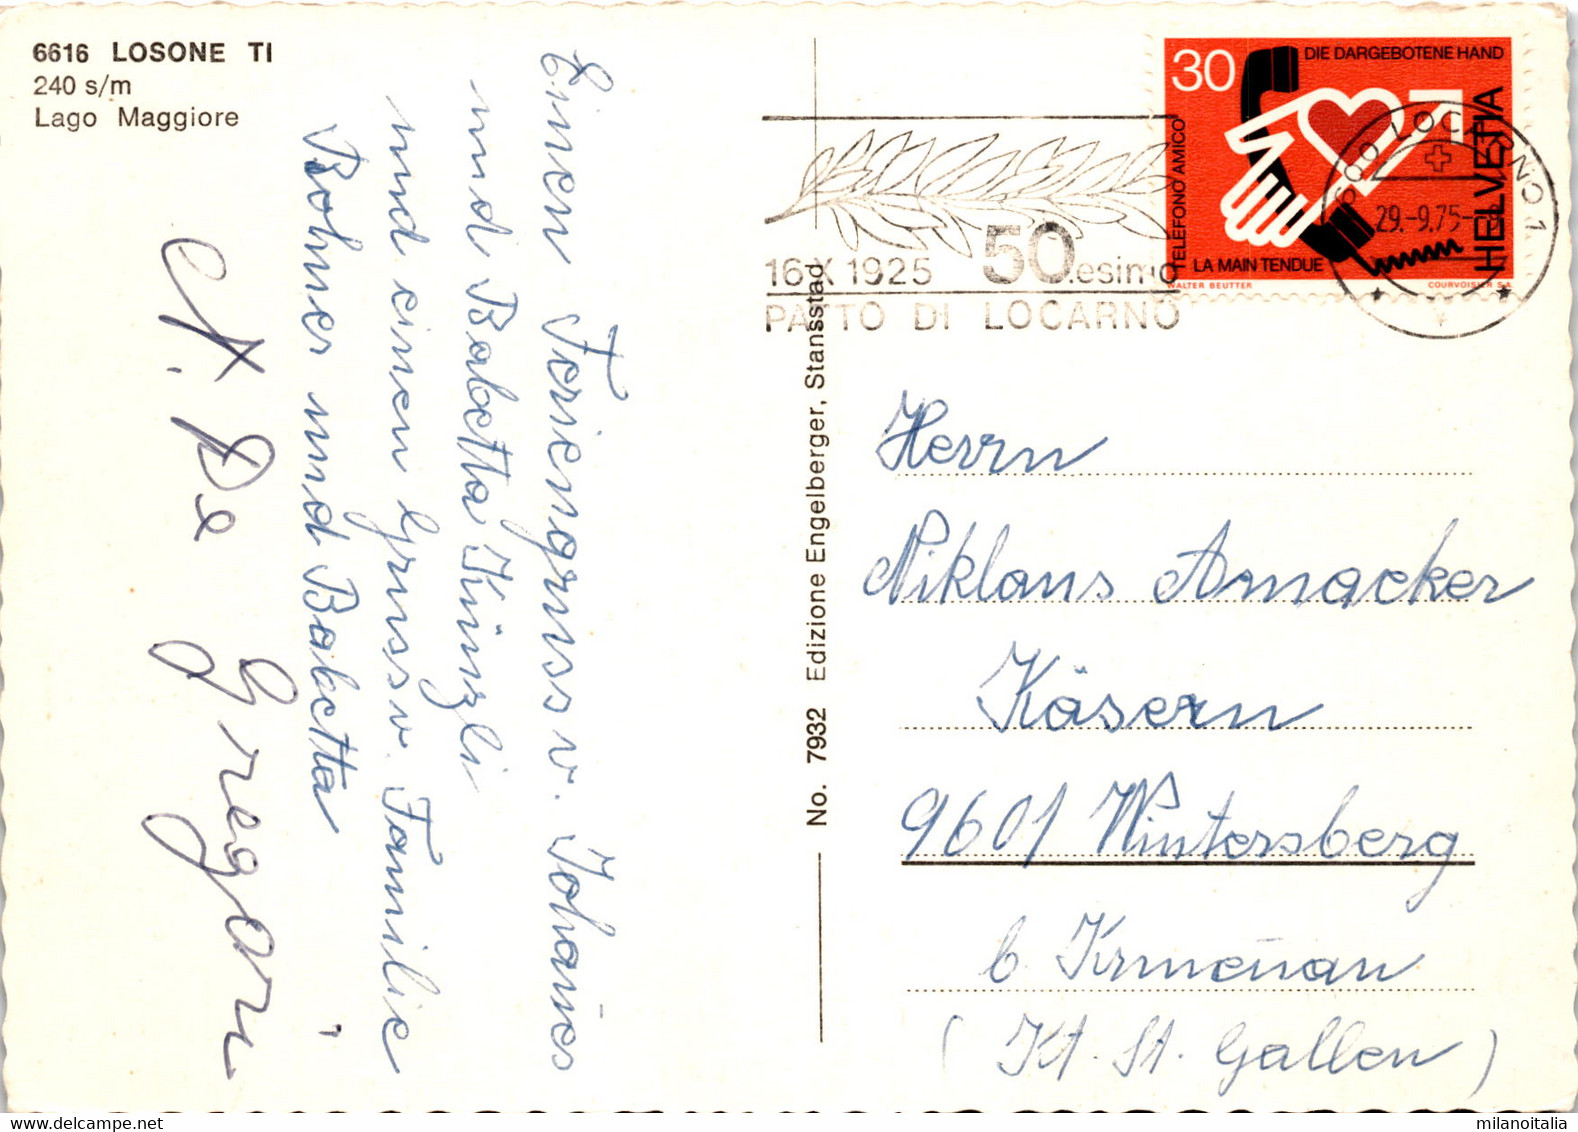 6616 LOSONE TI
240 s/m
Lago Maggiore
Einen Feriengruss v. Johanes
und Babetta Künzli
und einen Gruss v. Familie
Bohner und Babetta
A. De Gregori
No. 7932 Edizione Engelberger, Stansstad
16 X 1925 50.esimo
PATTO DI LOCARNO
30 DIE DARGEBOTENE HAND
TELEFONO AMICO
LA MAIN TENDUE
HELVETIA
WALTER BEUTTER COURVOISIER S.A.
6600 LOCARNO 1
29.-9.75-
Herrn
Niklaus Amacker
Käsern
9601 Wintersberg
b. Krmenau
(Kt. St. Gallen)
milanoitalia